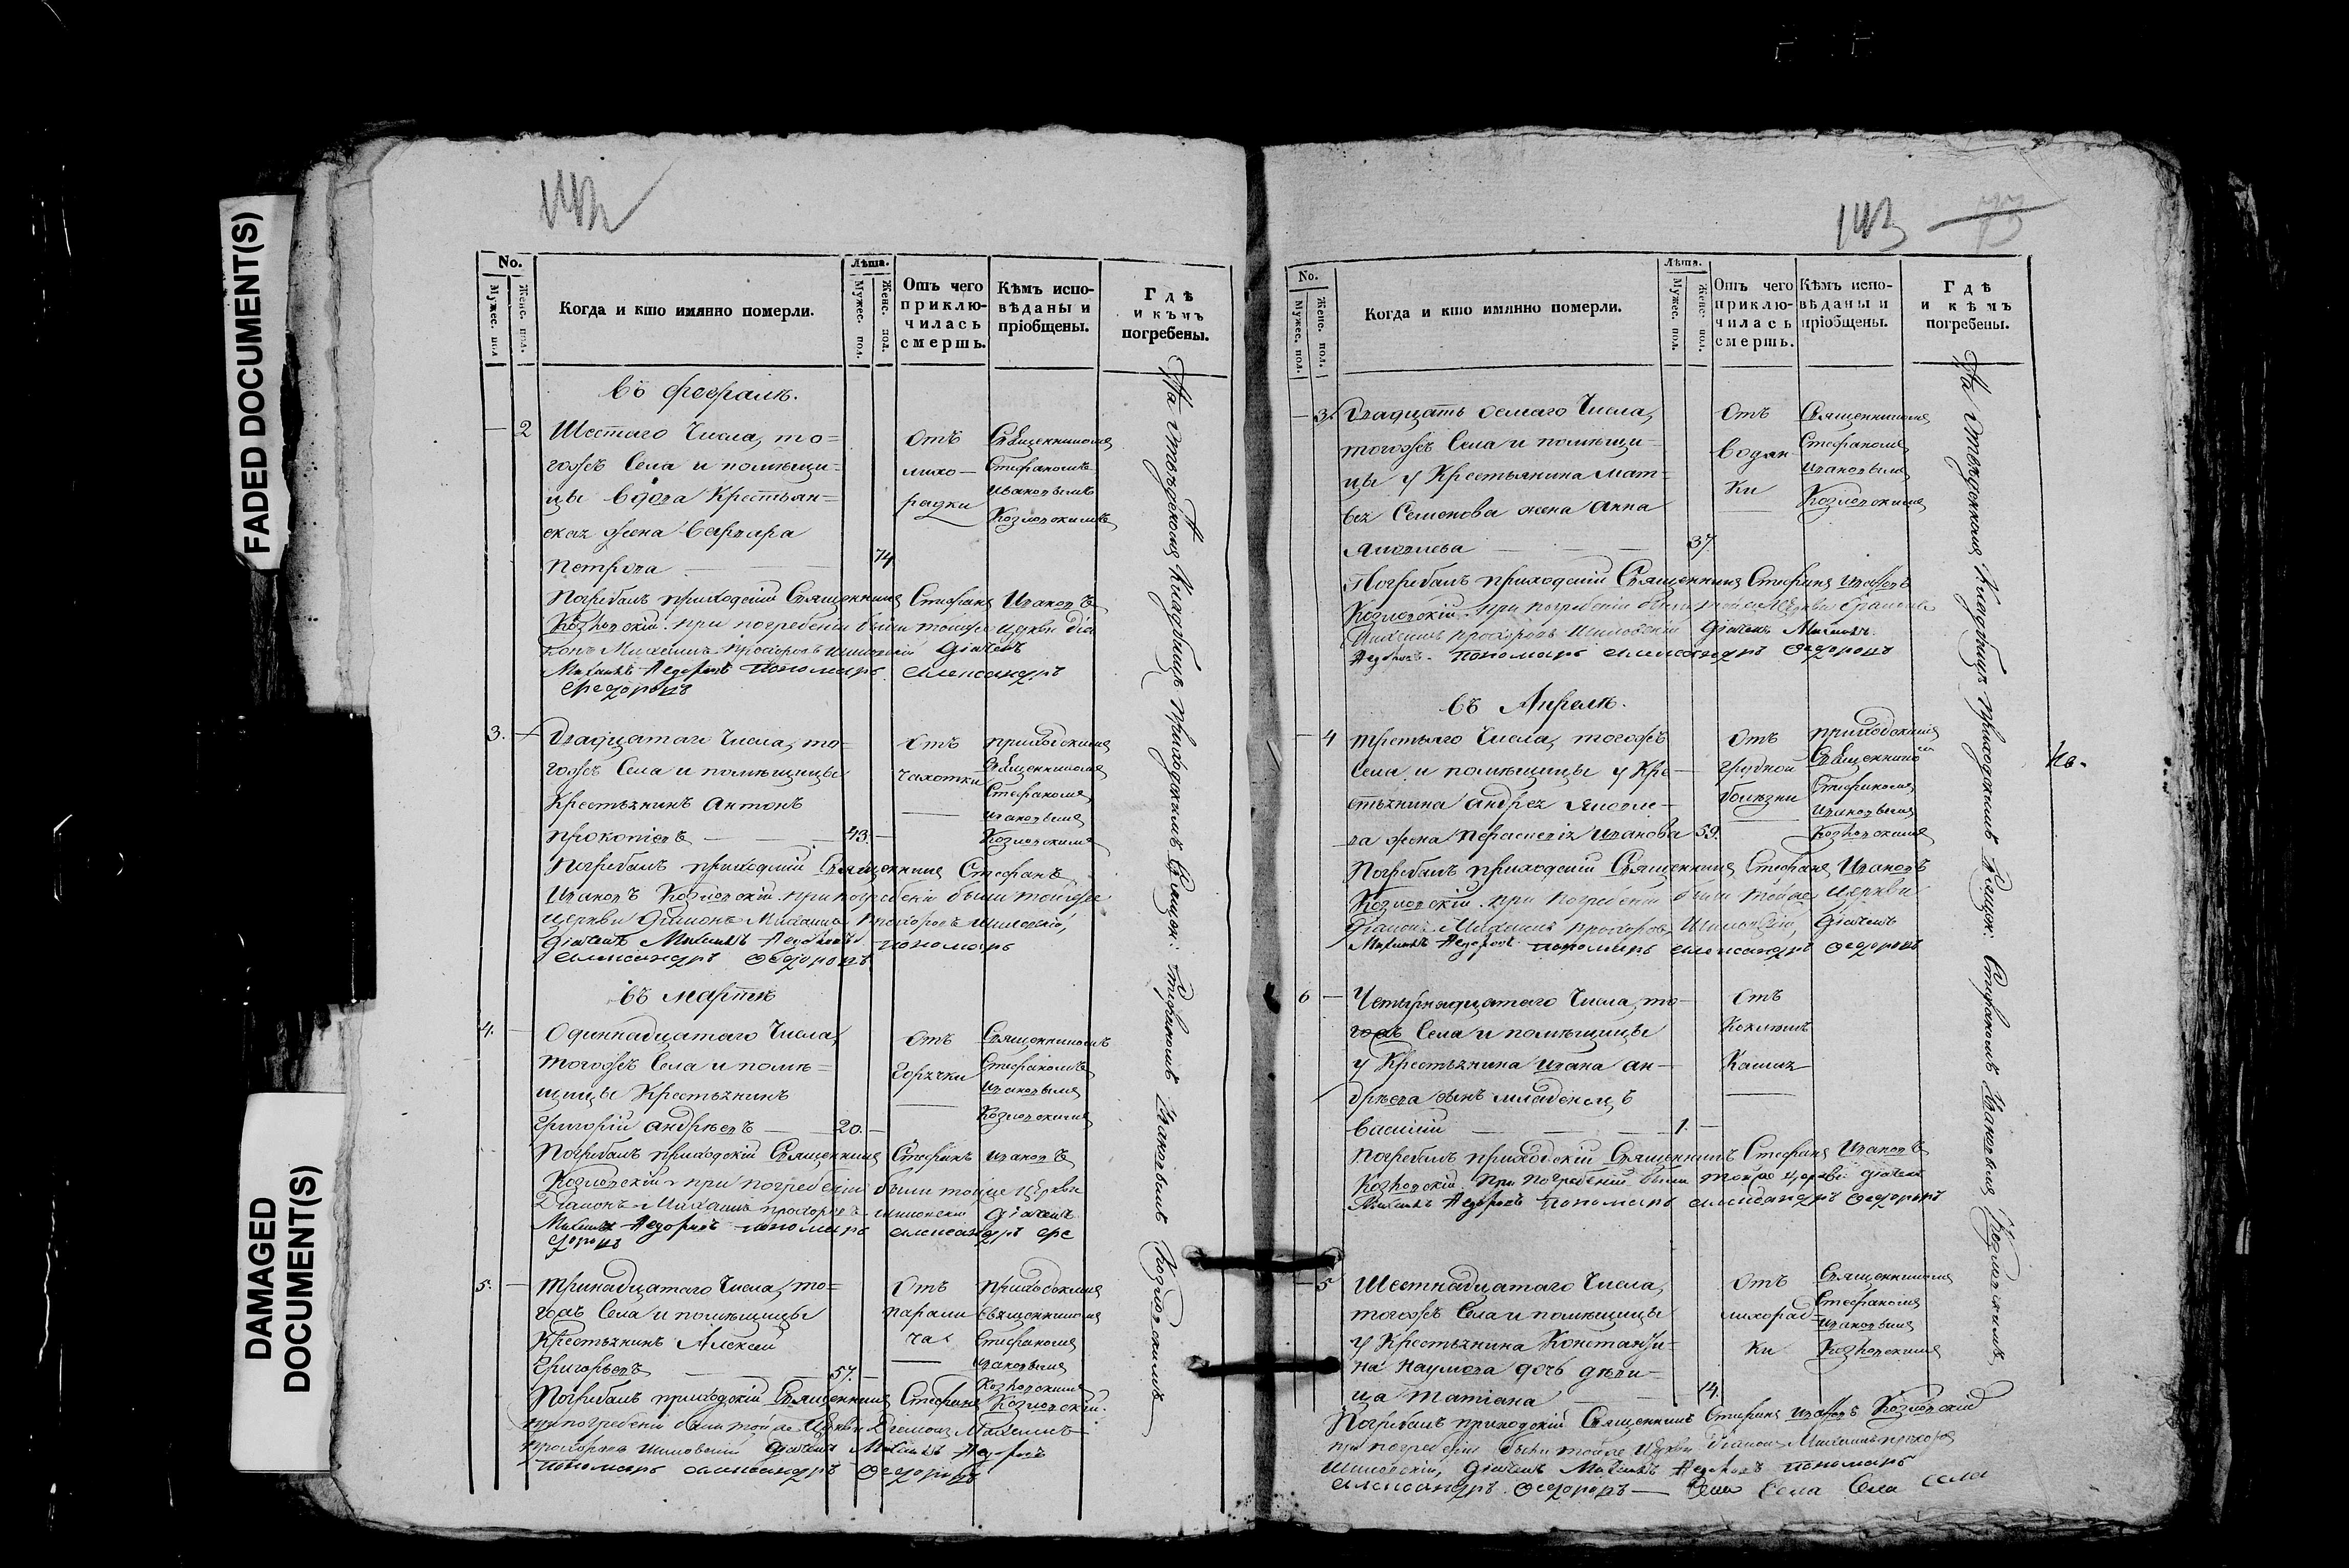 FADED DOCUMENT(S)
DAMAGED
DOCUMENT(S)
142
No.
Мужес. пол
Женс. пол.
Когда и кто имянно померли.
Лѣта.
Мужес. пол.
Женс. пол.
Отъ чего
приклю-
чилась
смерть.
Кѣмъ испо-
вѣданы и
пріобщены.
Гдѣ
и кѣмъ
погребены.
Въ февралѣ.
2
Шестаго Числа, то=
гожъ Села и помѣщи=
цы вдова Крестьян=
ская жена Варвара
Петрова
74
Отъ
лихо-
радки
Священникомъ
Стефаномъ
Ивановымъ
Козловскимъ
Погребалъ приходскій Священникъ Стефанъ Ивановъ
Козловскій. при погребеніи были тойже церкви діа
конъ Михаилъ Прохоровъ Шиловскій діачекъ
Михаилъ Федоровъ пономарь Александръ
Федоровъ
3.
Двадцатаго Числа, то=
гожъ Села и помѣщицы
Крестьянинъ Антонъ
Прокопіевъ
43.
Отъ
чахотки
приходскимъ
Священникомъ
Стефаномъ
Ивановымъ
Козловскимъ
Погребалъ приходскій Священникъ Стефанъ
Ивановъ Козловскій. при погребеніи были тойже
церкви діаконъ Михаилъ Прохоровъ Шиловскій,
діачекъ Михаилъ Федоровъ пономарь
Александръ Федоровъ
въ Мартѣ
4.
Одиннадцатаго Числа,
тогожъ Села и помѣ=
щицы Крестьянинъ
Григорій Андрѣевъ
20.
Отъ
горячки
Священникомъ
Стефаномъ
Ивановымъ
Козловскимъ
Погребалъ приходскій Священникъ Стефанъ Ивановъ
Козловскій при погребеніи были тойже церкви
Діаконъ Михаилъ Прохоровъ Шиловскій діачекъ
Михаилъ Федоровъ пономарь Александръ Фе
доровъ
5.
Тринадцатаго Числа, то=
гожъ Села и помѣщицы
Крестьянинъ Алексѣй
Григорьевъ
57.
Отъ
парали
ча
приходскимъ
Священникомъ
Стефаномъ
Ивановымъ
Козловскимъ
Погребалъ приходскій Священникъ Стефанъ Козловскій.
при погребеніи были тойже Церкви Діаконъ Михаилъ
Прохоровъ Шиловскій діачекъ Михаилъ Федоровъ
пономарь Александръ Федоровъ
приходскимъ Священ: Стефаномъ Ивановымъ Козловскимъ
143
73
No.
Мужес. пол.
Женс. пол.
Когда и кто имянно померли.
Лѣта.
Мужес. пол.
Женс. пол.
Отъ чего
приклю-
чилась
смерть.
Кѣмъ испо-
вѣданы и
пріобщены.
Гдѣ
и кѣмъ
погребены.
3.
Двадцать осмаго Числа,
тогожъ Села и помѣщи=
цы у Крестьянина Мат=
вея Семенова жена Анна
37.
Отъ
водян
ки
Священникомъ
Стефаномъ
Ивановымъ
Козловскимъ
Погребалъ приходскій Священникъ Стефанъ Ивановъ
Козловскій. при погребеніи были тойже Церкви
Михаилъ Прохоровъ Шиловскій діачекъ Михаилъ
Федоровъ. пономарь Александръ Федоровъ
Въ Апрелѣ.
4
Третьяго Числа, тогожъ
Села и помѣщицы у Кре-
стьянина Андрея
ва жена Параскевія Иванова
59.
Отъ
грудной
болѣзни
приходскимъ
Священнико
мъ
Стефаномъ
Ивановымъ
Козловскимъ
Погребалъ приходскій Священникъ Стефанъ Ивановъ
Козловскій. при погребеніи были тойже Церкви
Діаконъ Михаилъ Прохоровъ Шиловскій, діачекъ
Михаилъ Федоровъ. пономарь Александръ Федоровъ
6
Четырнадцатаго Числа, то-
гожъ Села и помѣщицы
у Крестьянина Ивана Ан-
дрѣева сынъ младенецъ
Василій
1.
Отъ
Кашля
Погребалъ приходскій Священникъ Стефанъ Ивановъ
Козловскій. При погребеніи были тойже церкви діачекъ
Михаилъ Федоровъ пономарь Александръ Федоровъ
5
Шестнадцатаго Числа,
тогожъ Села и помѣщицы
у Крестьянина Константи-
на Наумова дочь дѣви-
ца Татіана
14.
Отъ
лихорад-
ки
Священникомъ
Стефаномъ
Ивановымъ
Козловскимъ
Погребалъ приходскій Священникъ Стефанъ Ивановъ Козловскій
при погребеніи были тойже Церкви Діаконъ Михаилъ Прохоровъ
Шиловскій, діачекъ Михаилъ Федоровъ пономарь
Александръ Федоровъ — Села Села села
приходскимъ Священ: Стефаномъ Ивановымъ Козловскимъ